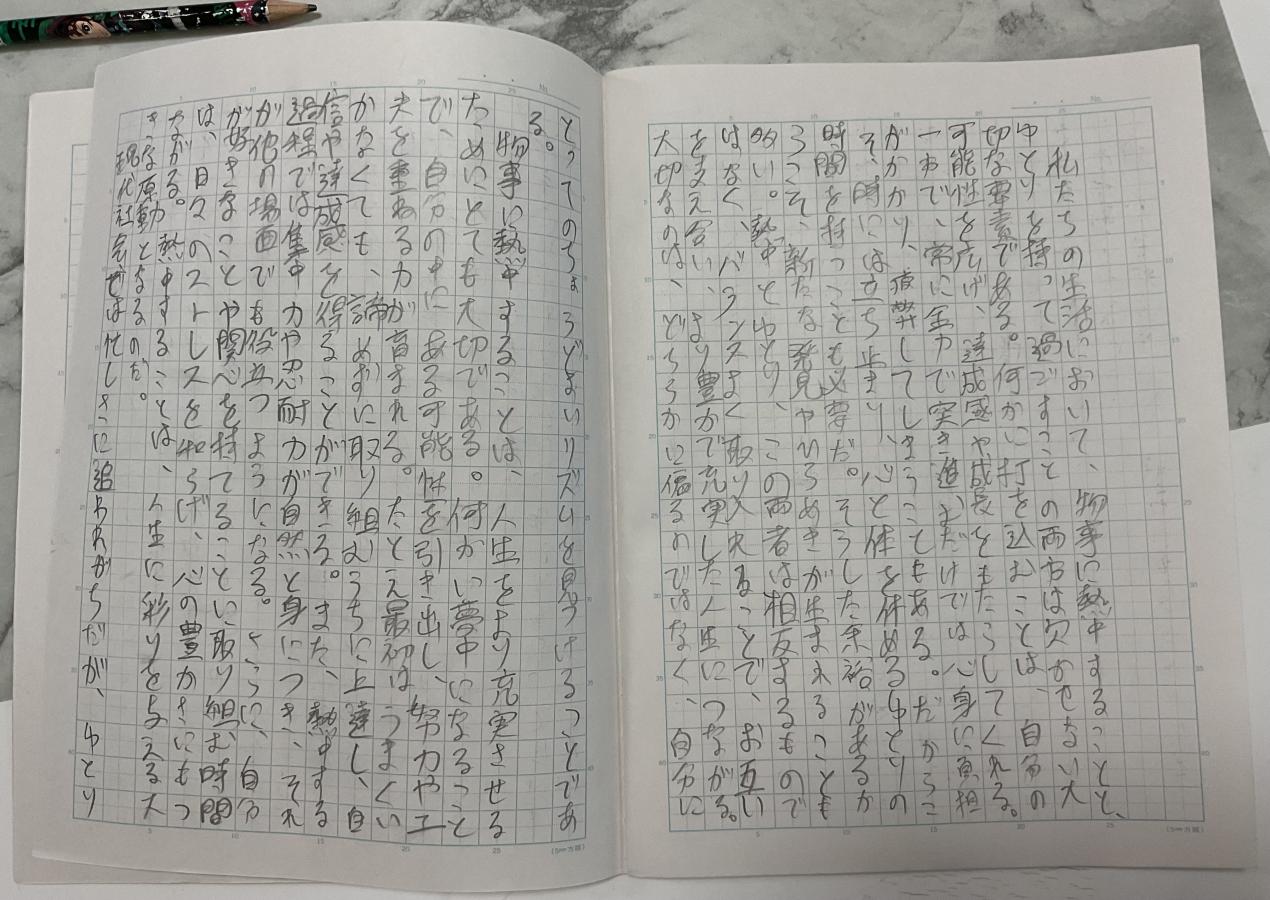 私たちの生活において、物事に熱中すること、
ゆとりを持って過ごすことの両方は欠かせない大
切な要素である。何かに打ち込むことは、自分の
可能性を広げ、達成感や成長をもたらしてくれる。
一方で、常に全力で突き進むだけでは心身に負担
がかかり、疲弊してしまうこともある。だからこ
そ、時には立ち止まり、心と体を休めるゆとりの
時間を持つことも必要だ。そうした余裕があるか
らこそ、新たな発見やひらめきが生まれることも
多い。熱中とゆとり、この両者は相反するもので
はなく、バランスよく取り入れることで、お互い
を支え合い、より豊かで充実した人生につながる。
大切なのは、どちらかに偏るのではなく、自分に
とってのちょうどよいリズムを見つけることであ
る。
物事に熱中することは、人生をより充実させる
ためにとても大切である。何かに夢中になること
で、自分の中にある可能性を引き出し、努力や工
夫を重ねる力が育まれる。たとえ最初はうまくい
かなくても、諦めずに取り組むうちに上達し、自
信や達成感を得ることができる。また、熱中する
過程では集中力や忍耐力が自然と身につき、それ
が他の場面でも役立つようになる。さらに、自分
が好きなことや関心を持てることに取り組む時間
は、日々のストレスを和らげ、心の豊かさにもつ
ながる。熱中することは、人生に彩りを与える大
きな原動力となるのだ。
現代社会では忙しさに追われがちだが、ゆとり